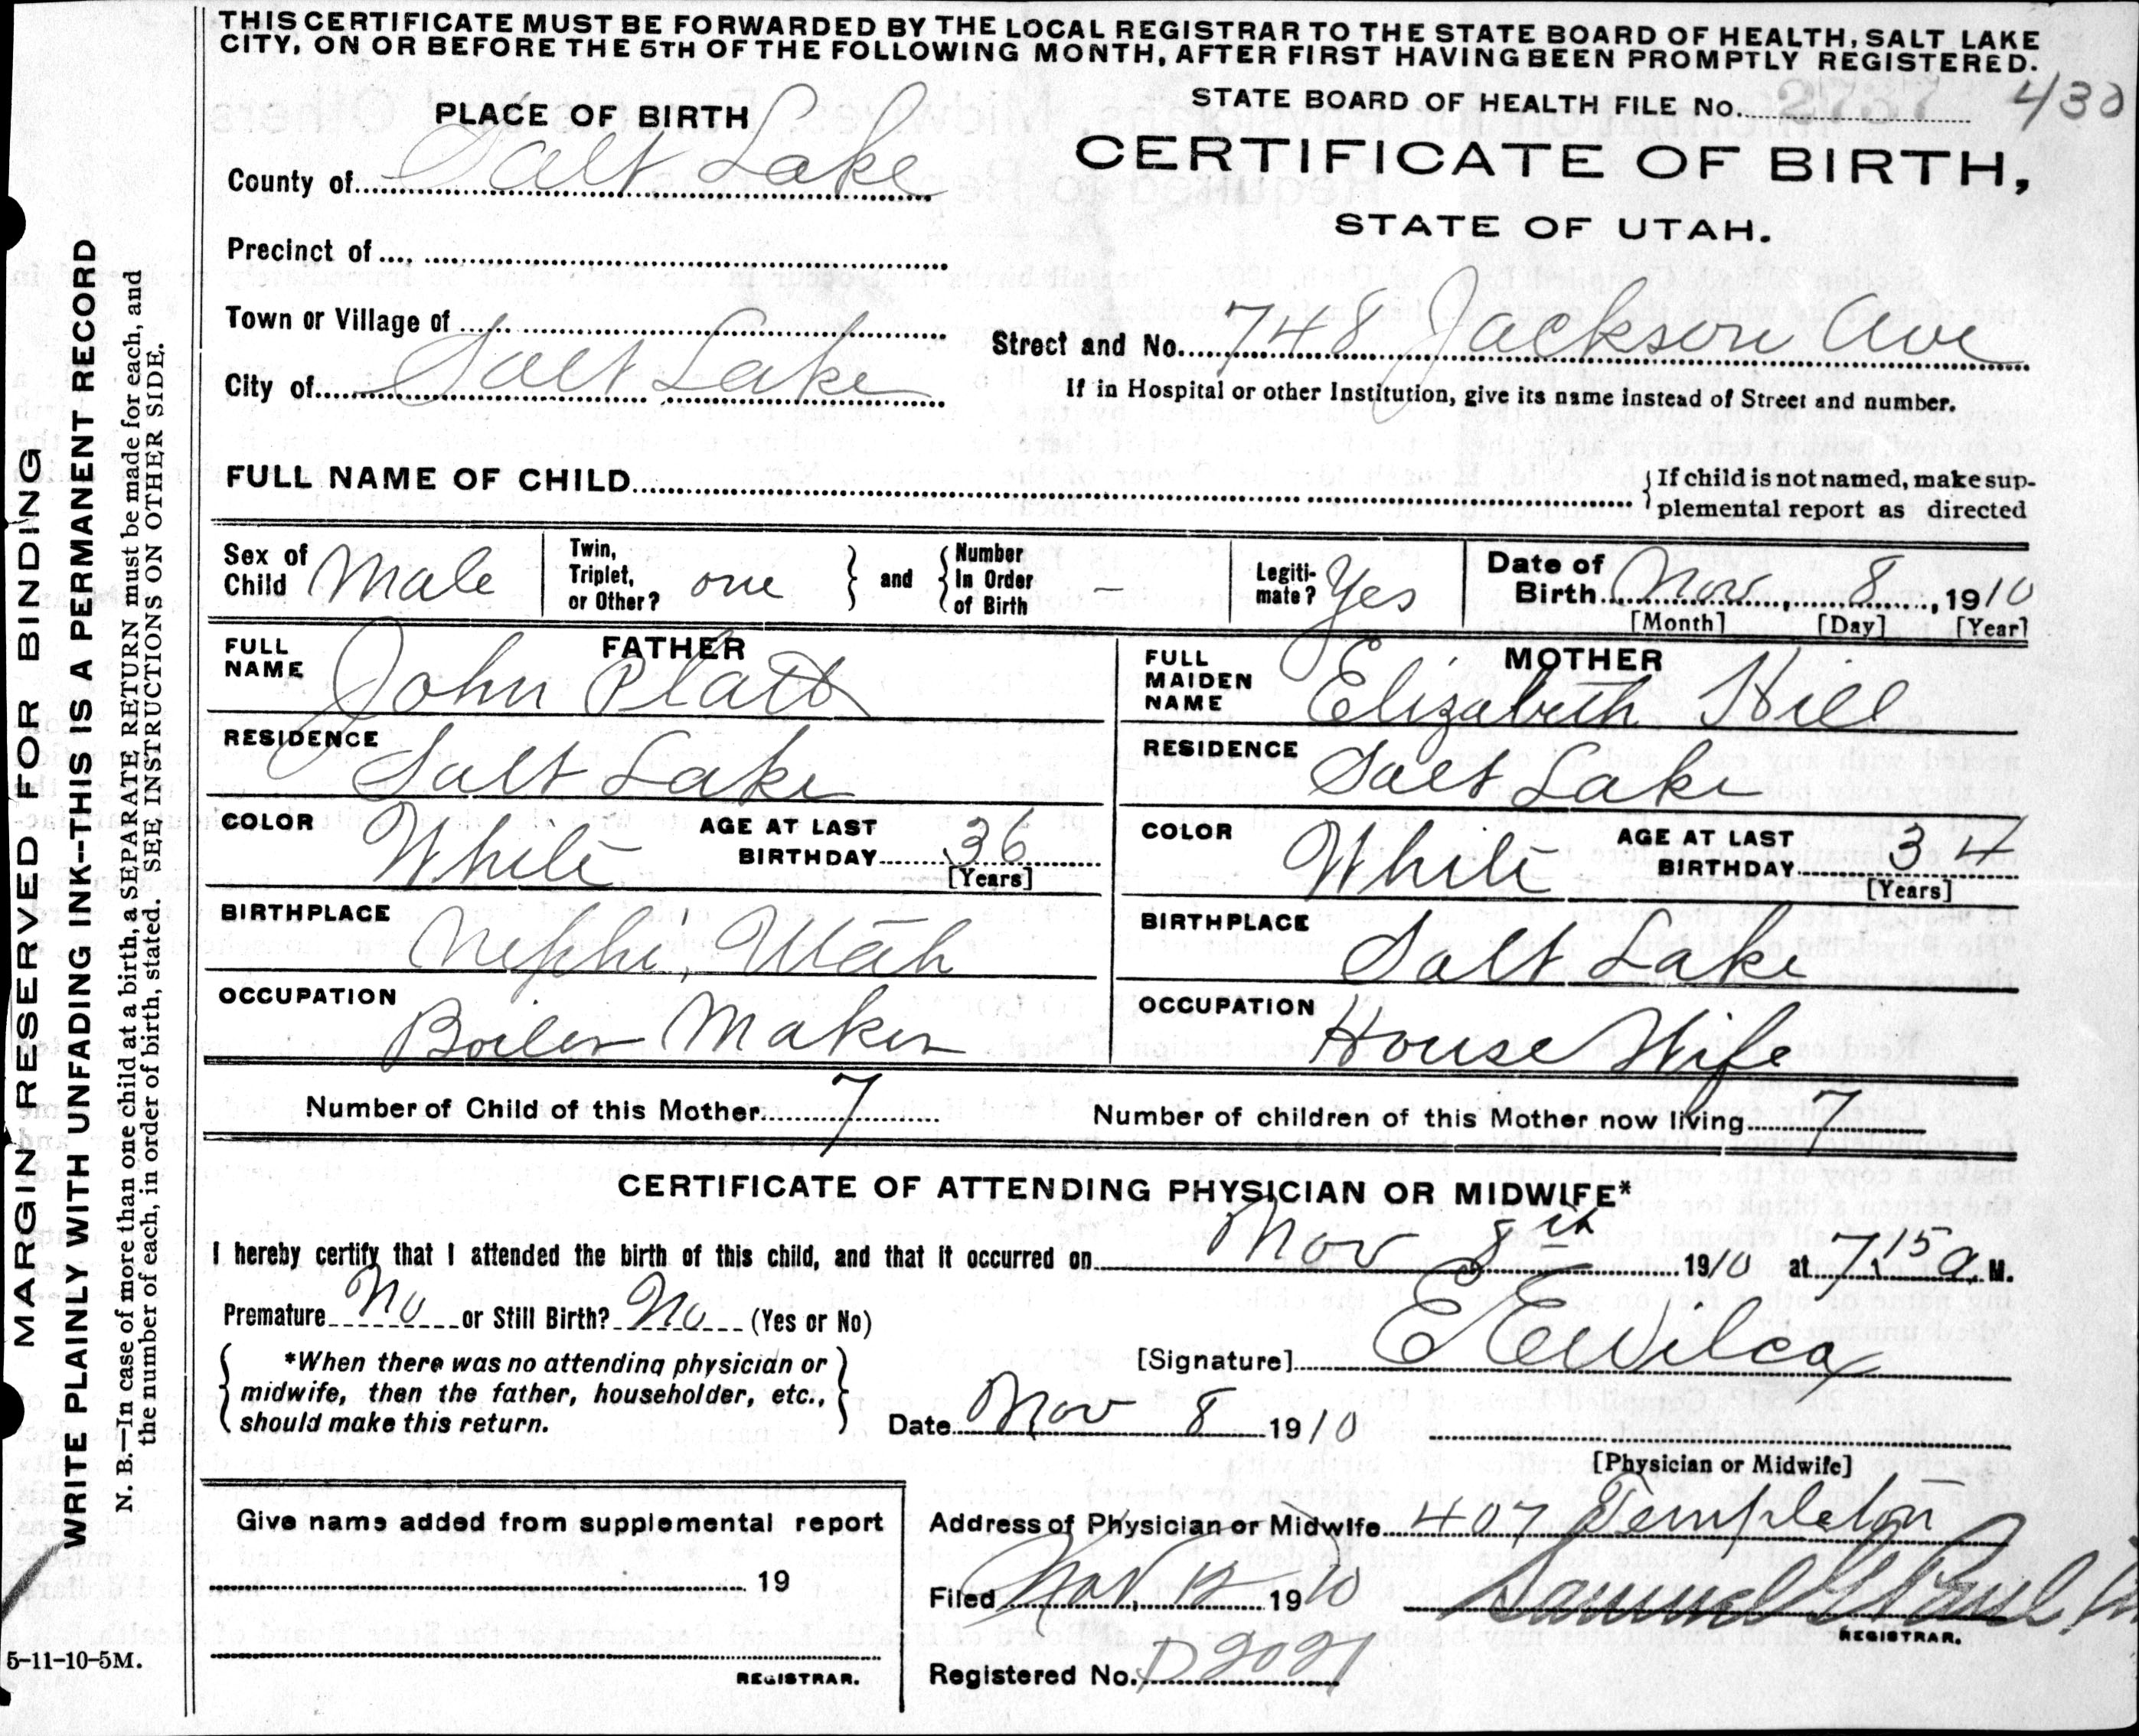 THIS CERTIFICATE MUST BE FORWARDED BY THE LOCAL REGISTRAR TO THE STATE BOARD OF HEALTH, SALT LAKE
CITY, ON OR BEFORE THE 5TH OF THE FOLLOWING MONTH, AFTER FIRST HAVING BEEN PROMPTLY REGISTERED.
STATE BOARD OF HEALTH FILE No. 2737 430
PLACE OF BIRTH
CERTIFICATE OF BIRTH,
County of Salt Lake
STATE OF UTAH.
Precinct of
Town or Village of
Street and No. 748 Jackson Ave
City of Salt Lake
If in Hospital or other Institution, give its name instead of Street and number.
FULL NAME OF CHILD
{If child is not named, make sup-
plemental report as directed
Sex of Child Male
Twin, Triplet, or Other? one } and { Number In Order of Birth –
Legiti-mate? Yes
Date of Birth Nov, 8, 1910
[Month] [Day] [Year]
FATHER
FULL NAME John Platt
RESIDENCE Salt Lake
COLOR White AGE AT LAST BIRTHDAY 36
[Years]
BIRTHPLACE Nephi, Utah
OCCUPATION Boiler Maker
MOTHER
FULL MAIDEN NAME Elizabeth Hill
RESIDENCE Salt Lake
COLOR White AGE AT LAST BIRTHDAY 34
[Years]
BIRTHPLACE Salt Lake
OCCUPATION House Wife
Number of Child of this Mother 7 Number of children of this Mother now living 7
CERTIFICATE OF ATTENDING PHYSICIAN OR MIDWIFE*
I hereby certify that I attended the birth of this child, and that it occurred on Nov 8th 1910 at 7:15 a. M.
Premature No or Still Birth? No (Yes or No)
{ *When there was no attending physician or
midwife, then the father, householder, etc.,
should make this return. }
[Signature] E E Wilcox
Date Nov 8 1910
[Physician or Midwife]
Give name added from supplemental report
19
REGISTRAR.
Address of Physician or Midwife 407 Templeton
Filed Nov, 12 1910 Samuel G Paul
REGISTRAR.
Registered No. D2021
MARGIN RESERVED FOR BINDING
WRITE PLAINLY WITH UNFADING INK--THIS IS A PERMANENT RECORD
N. B.—In case of more than one child at a birth, a SEPARATE RETURN must be made for each, and
the number of each, in order of birth, stated. SEE INSTRUCTIONS ON OTHER SIDE.
5-11-10-5M.